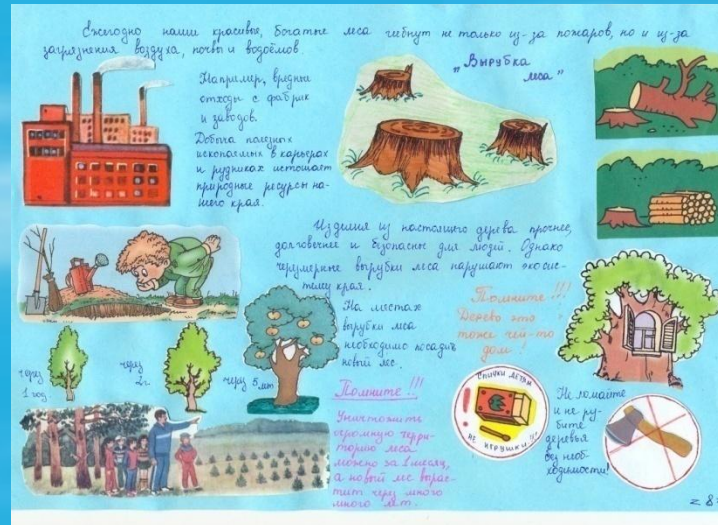 Ежегодно наши красивые, богатые леса гибнут не только из-за пожаров, но и из-за
загрязнения воздуха, почвы и водоёмов.
Например, вредные
отходы с фабрик
и заводов.
Добыча полезных
ископаемых в карьерах
и рудниках истощает
природные ресурсы на-
шего края.
"Вырубка
леса"
Изделия из настоящего дерева прочнее,
долговечнее и безопасны для людей. Однако
черезмерные вырубки леса нарушают экосис-
тему края.
На местах
вырубки леса
необходимо посадить
новый лес.
Помните!!!
Дерево это
тоже чей-то
дом!
через
1 год
через
2 г.
через 5 лет
Помните!!!
Уничтожить
огромную терри-
торию леса
можно за 1 месяц,
а новый лес вырас-
тит через много
много лет.
СПИЧКИ ДЕТЯМ
НЕ ИГРУШКИ!!!
Не ломайте
и не ру-
бите
деревья
без необ-
ходимости!